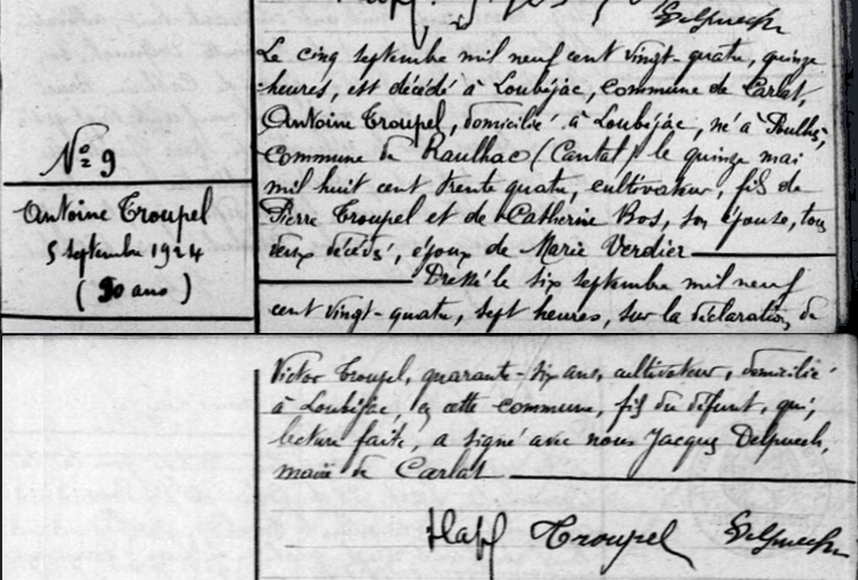 Delpuech
Le cinq septembre mil neuf cent vingt-quatre, quinze
heures, est décédé à Loubéjac, commune de Carlat,
Antoine Troupel, domicilié à Loubéjac, né à
commune de Raulhac (Cantal) le quinze mai
mil huit cent trente quatre, cultivateur, fils de
Pierre Troupel et de Catherine Bos, son épouse, tous
deux décédés, époux de Marie Verdier
Dressé le six septembre mil neuf
cent vingt-quatre, sept heures, sur la déclaration de
N° 9
Antoine Troupel
5 septembre 1924
(90 ans)
Victor Troupel, quarante-six ans, cultivateur, domicilié
à Loubéjac, en cette commune, fils du défunt, qui,
lecture faite, a signé avec nous Jacques Delpuech,
maire de Carlat
Troupel Delpuech